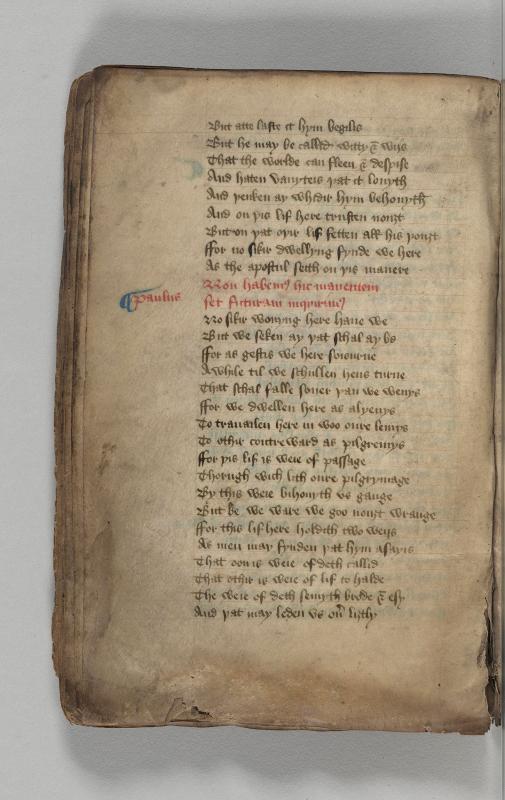 But atte laste it hym begilis
But he may be callid witty & wijs
That the worlde can fleen & despise
And haten vanyteis þat it louyth
And þenken ay whidir hym behouyth
And on þis lif here trusten nouȝt
But on þat oþir lif setten all his þouȝt
ffor no sikir dwellyng fynde we here
As the apostul seith on þis manere
Paulus
Non habem9 hic manentem
set futuram inquirim9
No sikir wonyng here haue we
But we seken ay þat schal ay be
ffor as gestis we here soiourne
Awhile til we schullen hens turne
That schal falle soner þan we wenys
ffor we dwellen here as alyenys
To trauailen here in woo oure lemys
To othir contreward as pilgremys
ffor þis lif is weie of passage
Thorugh wich lith oure pilgrymage
By this weie bihouyth vs gange
But be we ware we goo nouȝt wrange
ffor this lif here holdith two weijs
As men may fynden þat hym asayis
That oon is weie of deth callid
That othir is weie of lif to halde
The weie of deth semyth brode & esy
And þat may leden vs ou liȝtly